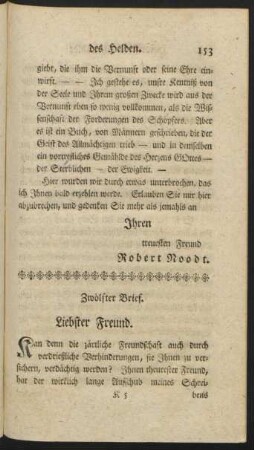 des Helden. 153
giebt, die ihm die Vernunft oder seine Ehre ein-
wirft. — — Ich gestehe es, unsre Kentniß von
der Seele und Ihrem großen Zwecke wird aus der
Vernunft eben so wenig vollkommen, als die Wis-
senschaft der Forderungen des Schöpfers. Aber
es ist ein Buch, von Männern geschrieben, die der
Geist des Allmächtigen trieb — und in demselben
ein vortrefliches Gemählde des Herzens GOttes —
des Sterblichen — der Ewigkeit —
Hier wurden wir durch etwas unterbrochen, das
ich Ihnen bald erzehlen werde. Erlauben Sie mir hier
abzubrechen, und gedenken Sie mehr als jemals an
Ihren
treuesten Freund
Robert Noodt.
Zwölfter Brief.
Liebster Freund.
Kan denn die zärtliche Freundschaft auch durch
verdriesliche Verhinderungen, sie Ihnen zu ver-
sichern, verdächtig werden? Ihnen theuerster Freund,
hat der wirklich lange Aufschub meines Schrei-
K 5 bens